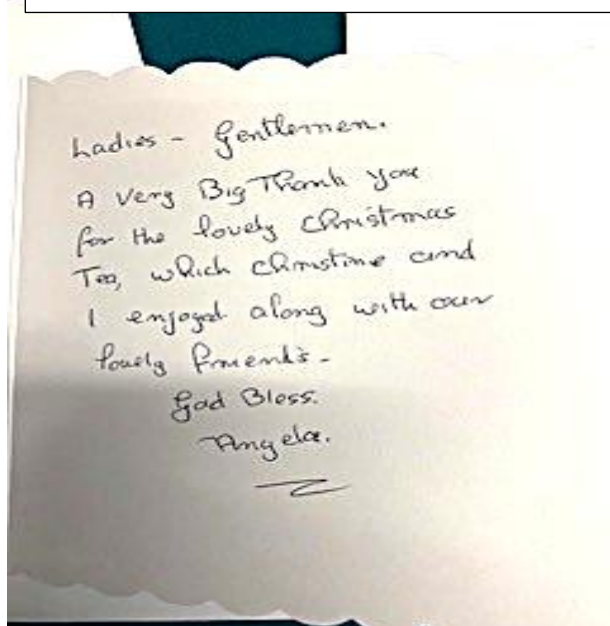 Ladies - Gentlemen.
A Very Big Thank you
for the lovely Christmas
Tea, which Christine and
I enjoyed along with our
lovely friends -
God Bless.
Angela.